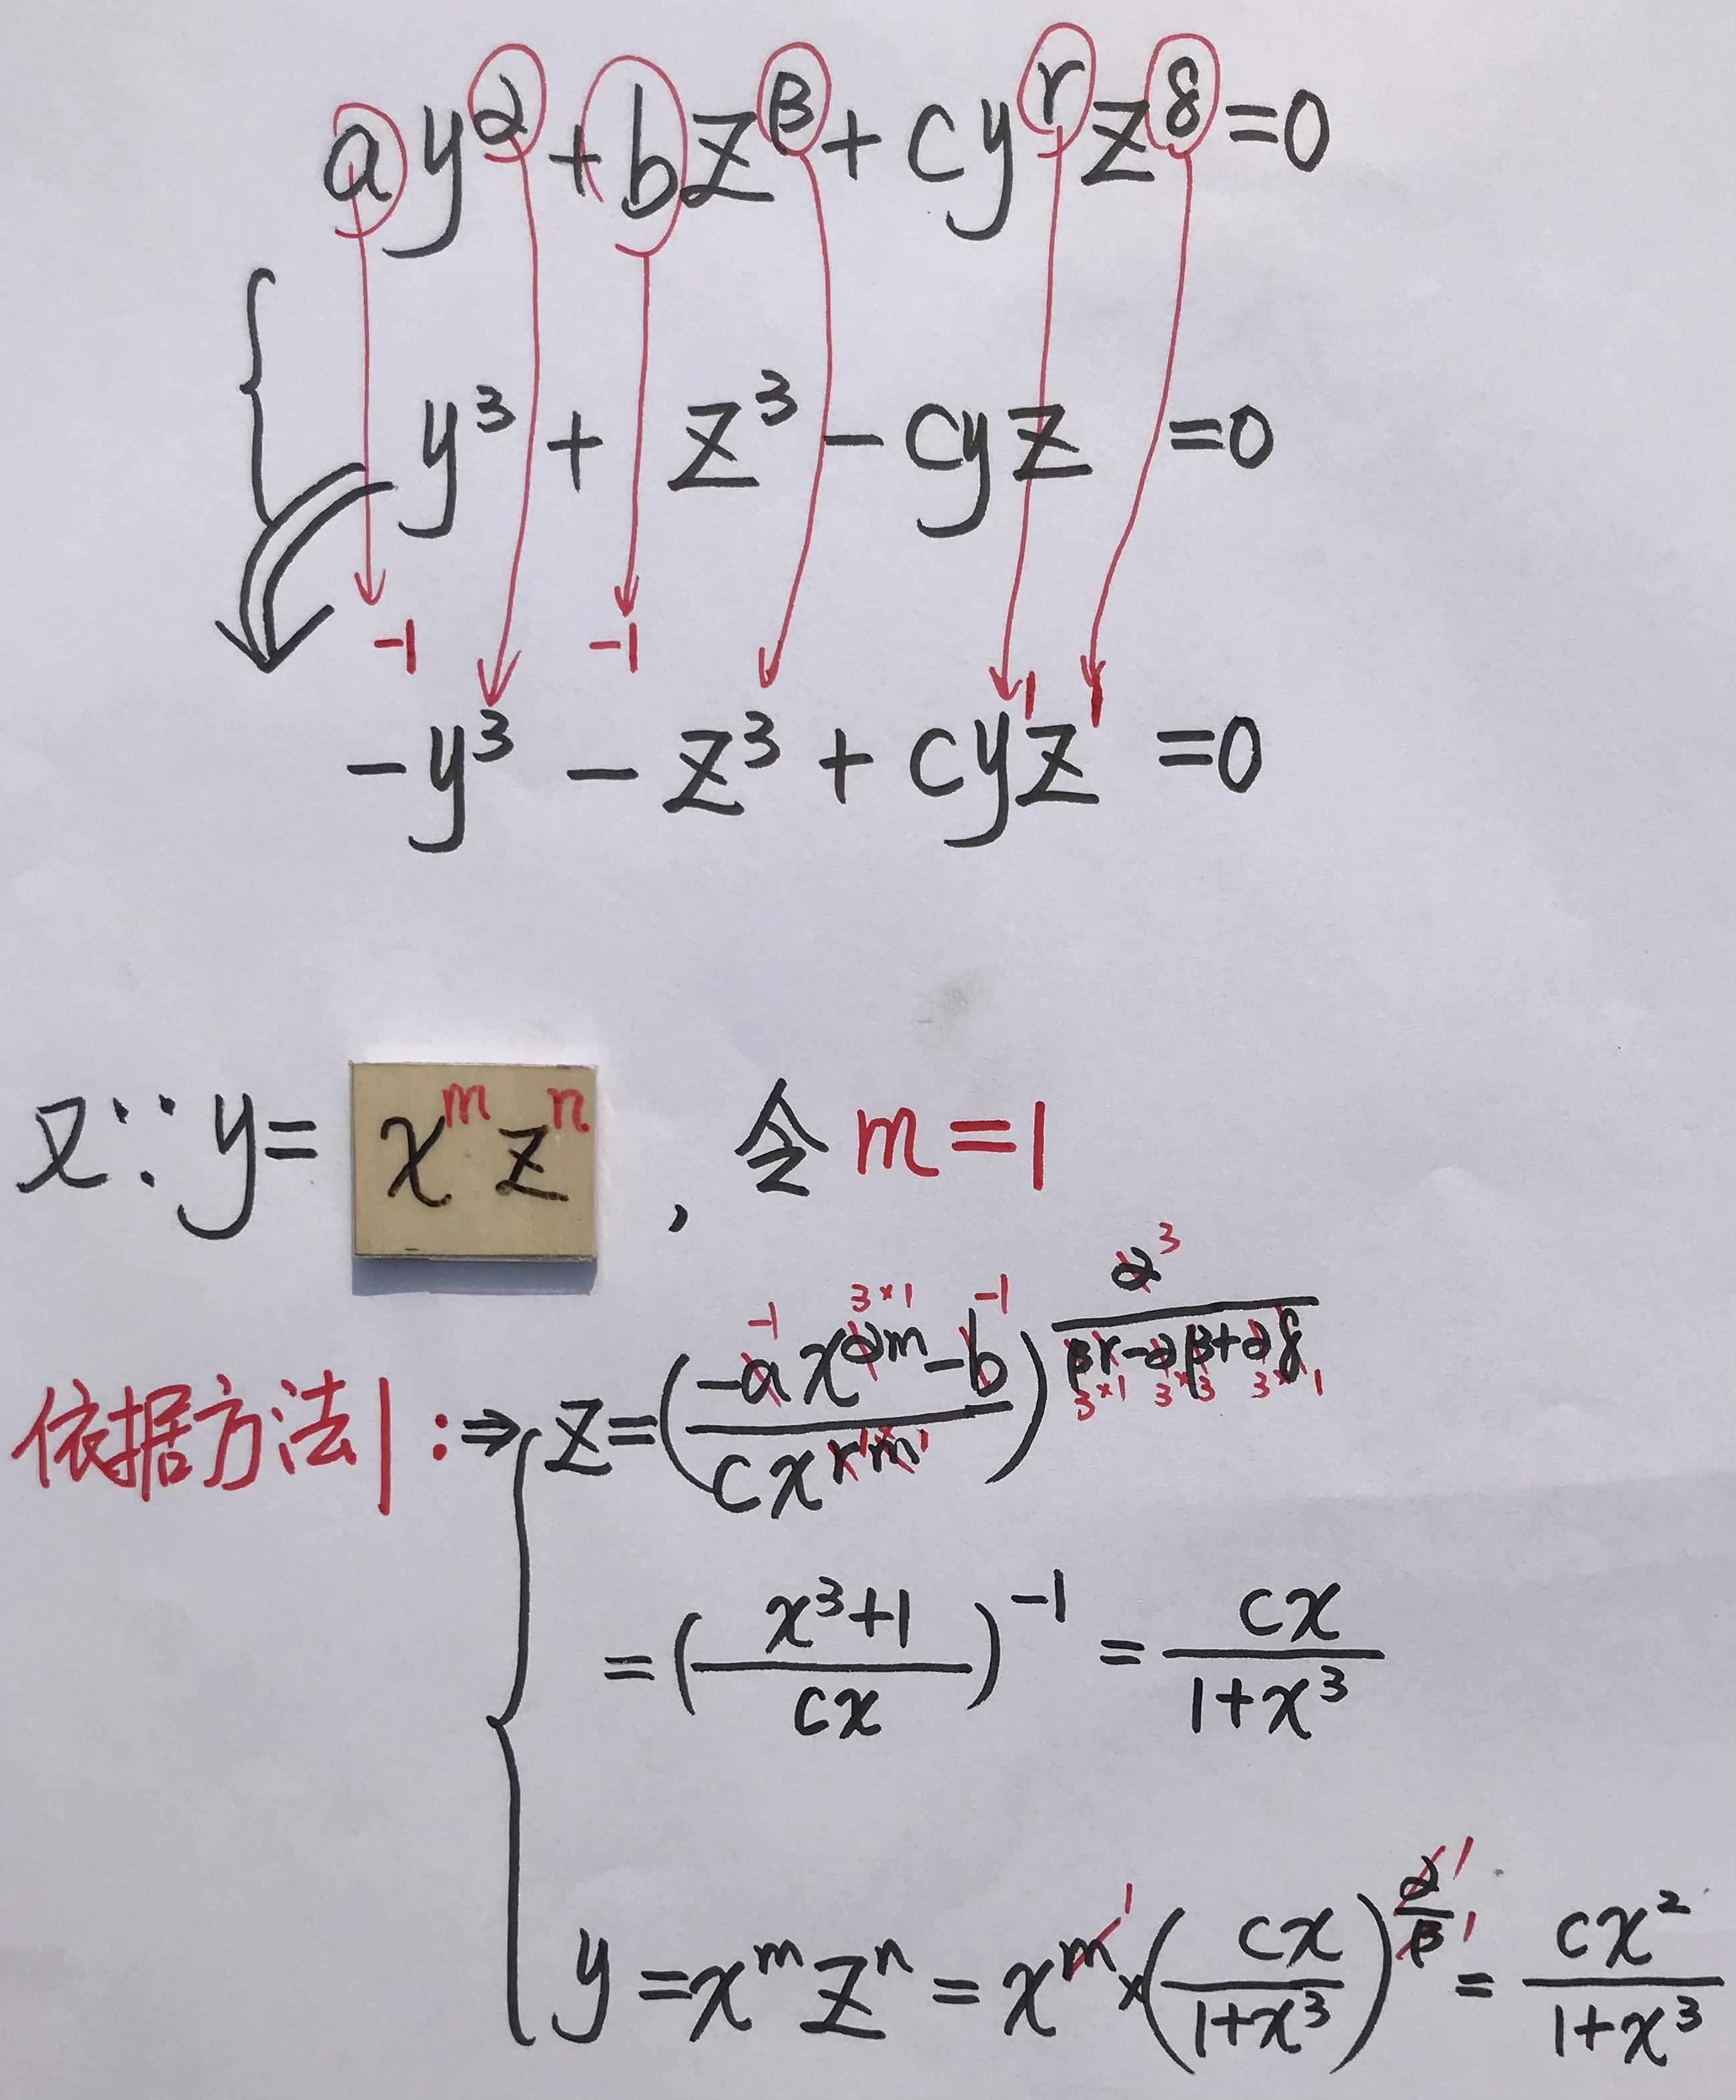 ay^α + bz^β + cy^γ z^δ = 0
y³ + z³ - cyz = 0
-1 -1
-y³ - z³ + cy¹z¹ = 0
又∵ y = x^m z^n , 令 m = 1
依据方法1: ⇒ z = ((-a x^(αm) - b)/(c x^(γm)))^(α/(βγ - αβ + αδ))
-1 3×1 -1 3 1×1 3×1 3×3 3×1
= ((x³+1)/(cx))^(-1) = cx/(1+x³)
y = x^m z^n = x^m × (cx/(1+x³))^(α/β) = cx²/(1+x³)
1 1 1